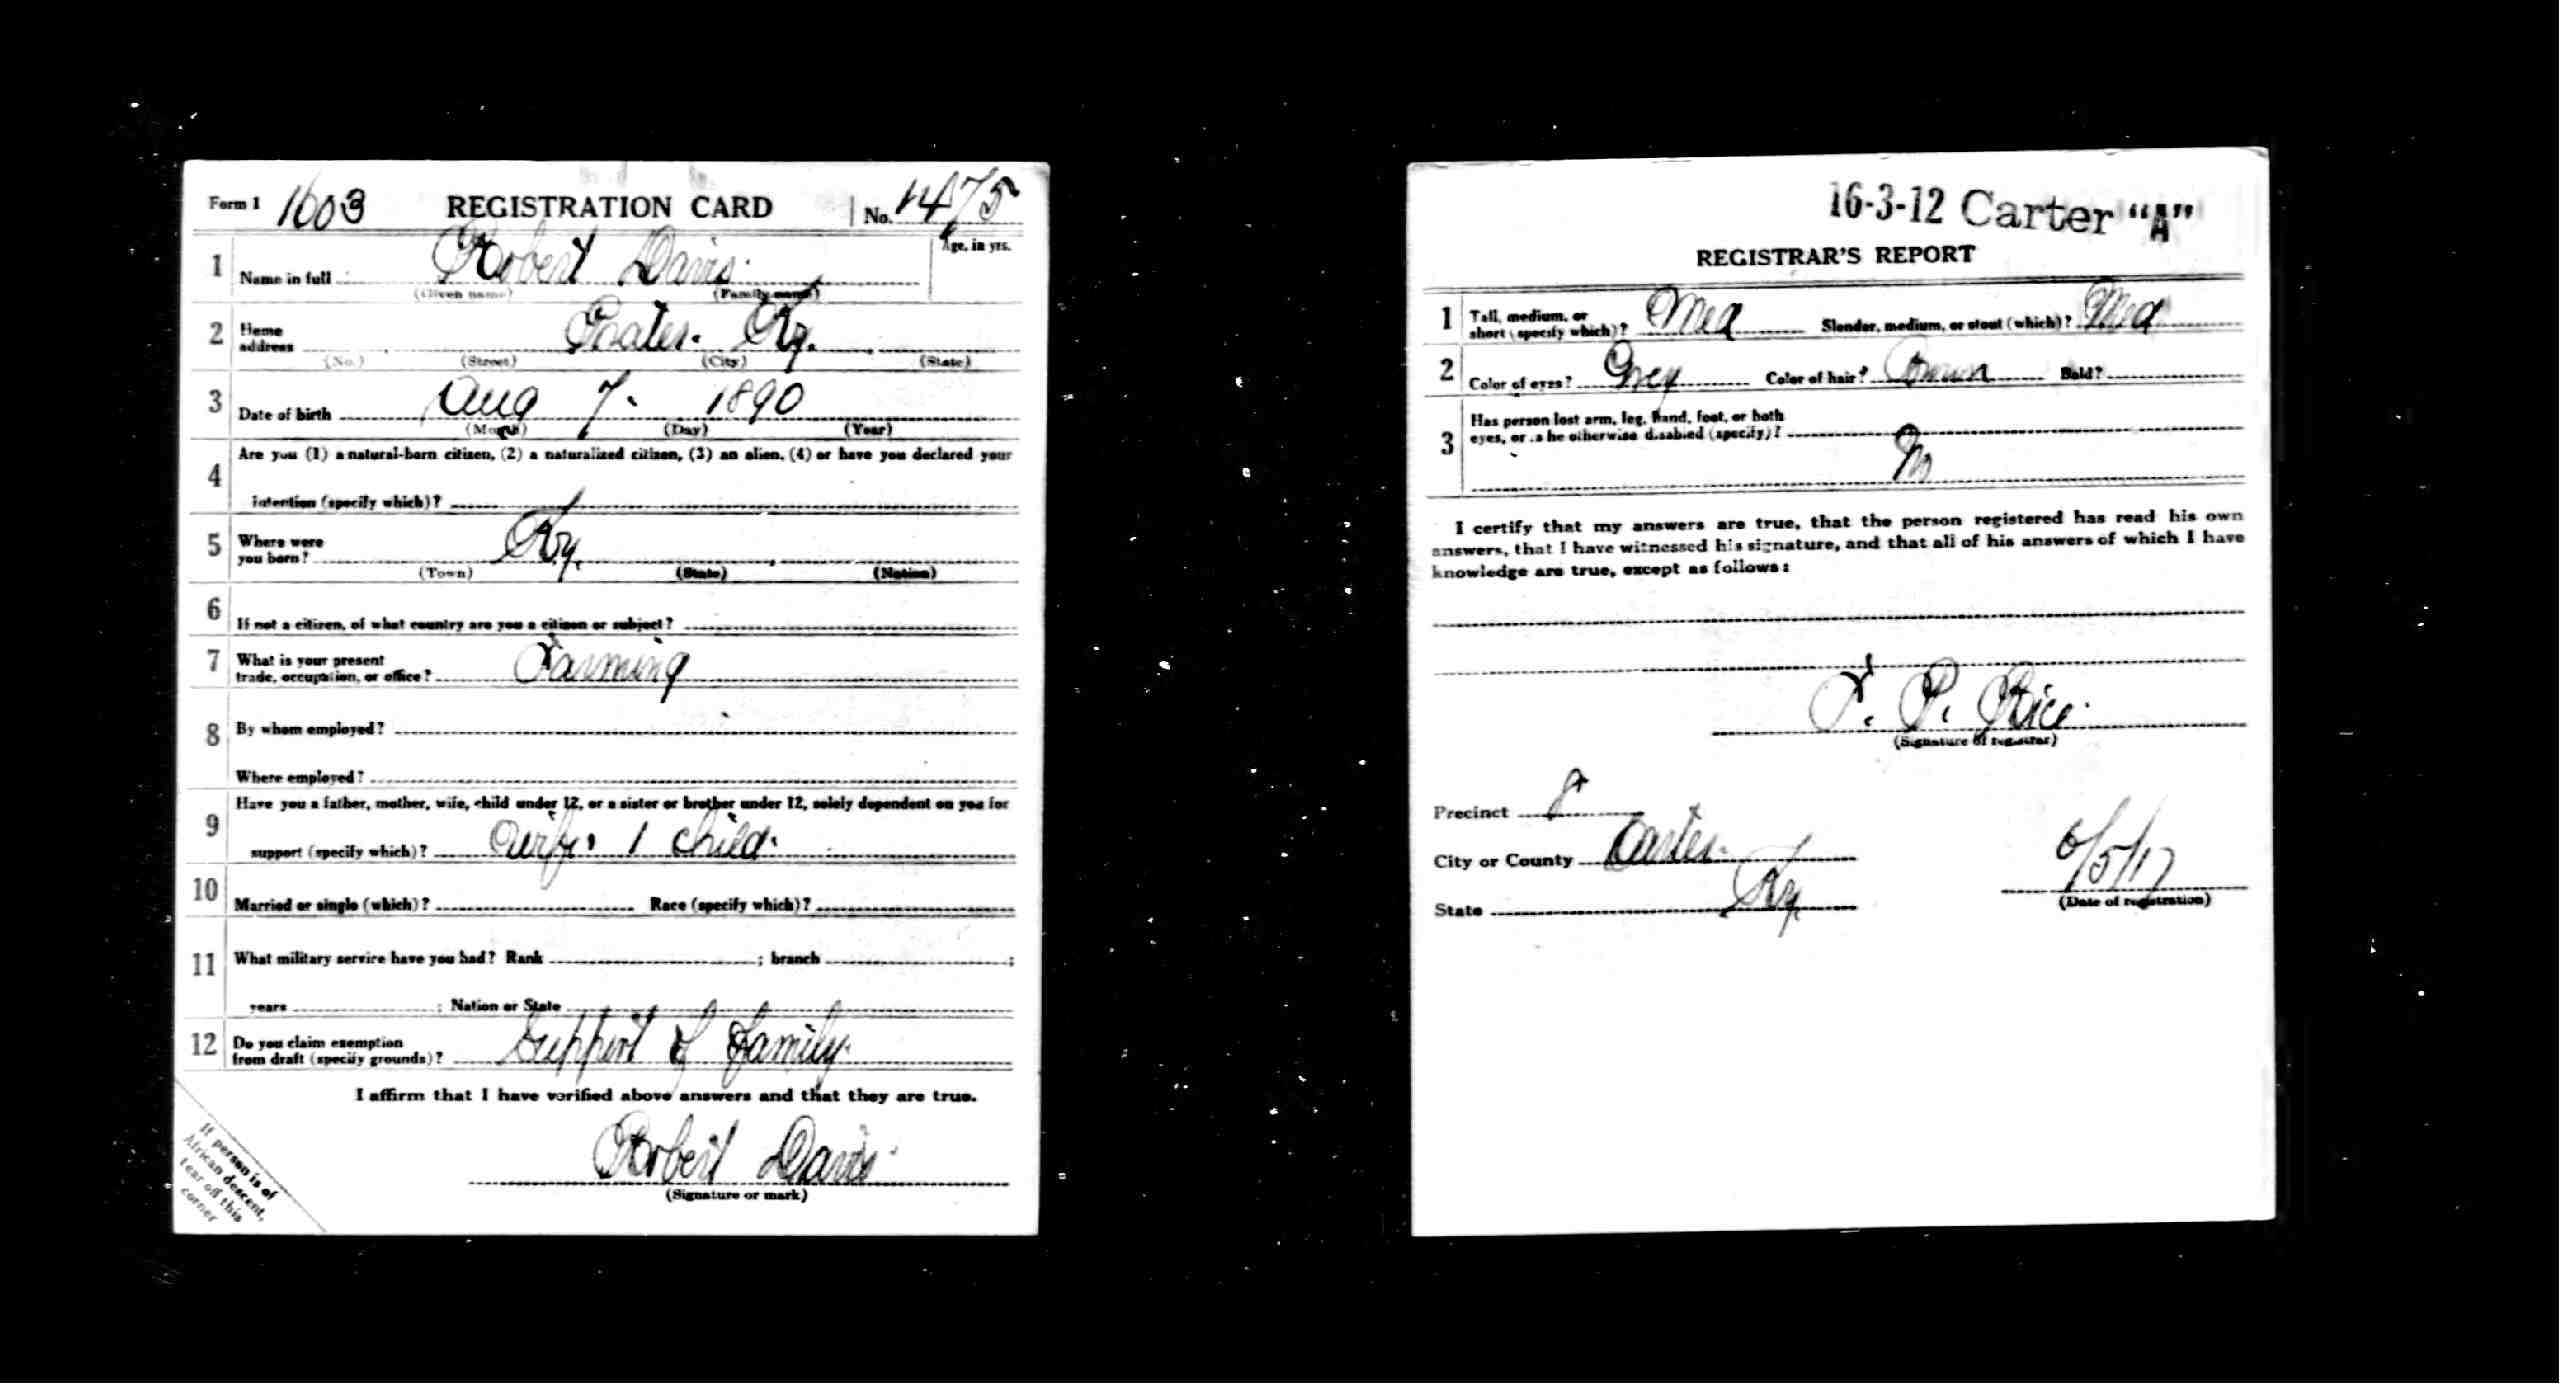 Form 1 1603 REGISTRATION CARD No. 1475
1 Name in full Robert Davis. Age, in yrs.
(Given name) (Family name)
2 Home address Ky.
(No.) (Street) (City) (State)
3 Date of birth Aug 7. 1890
(Month) (Day) (Year)
4 Are you (1) a natural-born citizen, (2) a naturalized citizen, (3) an alien, (4) or have you declared your
intention (specify which)?
5 Where were you born? Ky.
(Town) (State) (Nation)
6 If not a citizen, of what country are you a citizen or subject?
7 What is your present trade, occupation, or office? Farming
8 By whom employed?
Where employed?
9 Have you a father, mother, wife, child under 12, or a sister or brother under 12, solely dependent on you for
support (specify which)? Wife. 1 child.
10 Married or single (which)? Race (specify which)?
11 What military service have you had? Rank ; branch ;
years ; Nation or State
12 Do you claim exemption from draft (specify grounds)? Support of family.
I affirm that I have verified above answers and that they are true.
Robert Davis.
(Signature or mark)
If person is of
African descent,
tear off this
corner
16-3-12 Carter "A"
REGISTRAR'S REPORT
1 Tall, medium, or short (specify which)? Med Slender, medium, or stout (which)? Med
2 Color of eyes? Grey Color of hair? Brown Bald?
3 Has person lost arm, leg, hand, foot, or both
eyes, or is he otherwise disabled (specify)?
No
I certify that my answers are true, that the person registered has read his own
answers, that I have witnessed his signature, and that all of his answers of which I have
knowledge are true, except as follows:
F. P. Rice.
(Signature of registrar)
Precinct
City or County Carter.
State Ky. 6/5/17
(Date of registration)